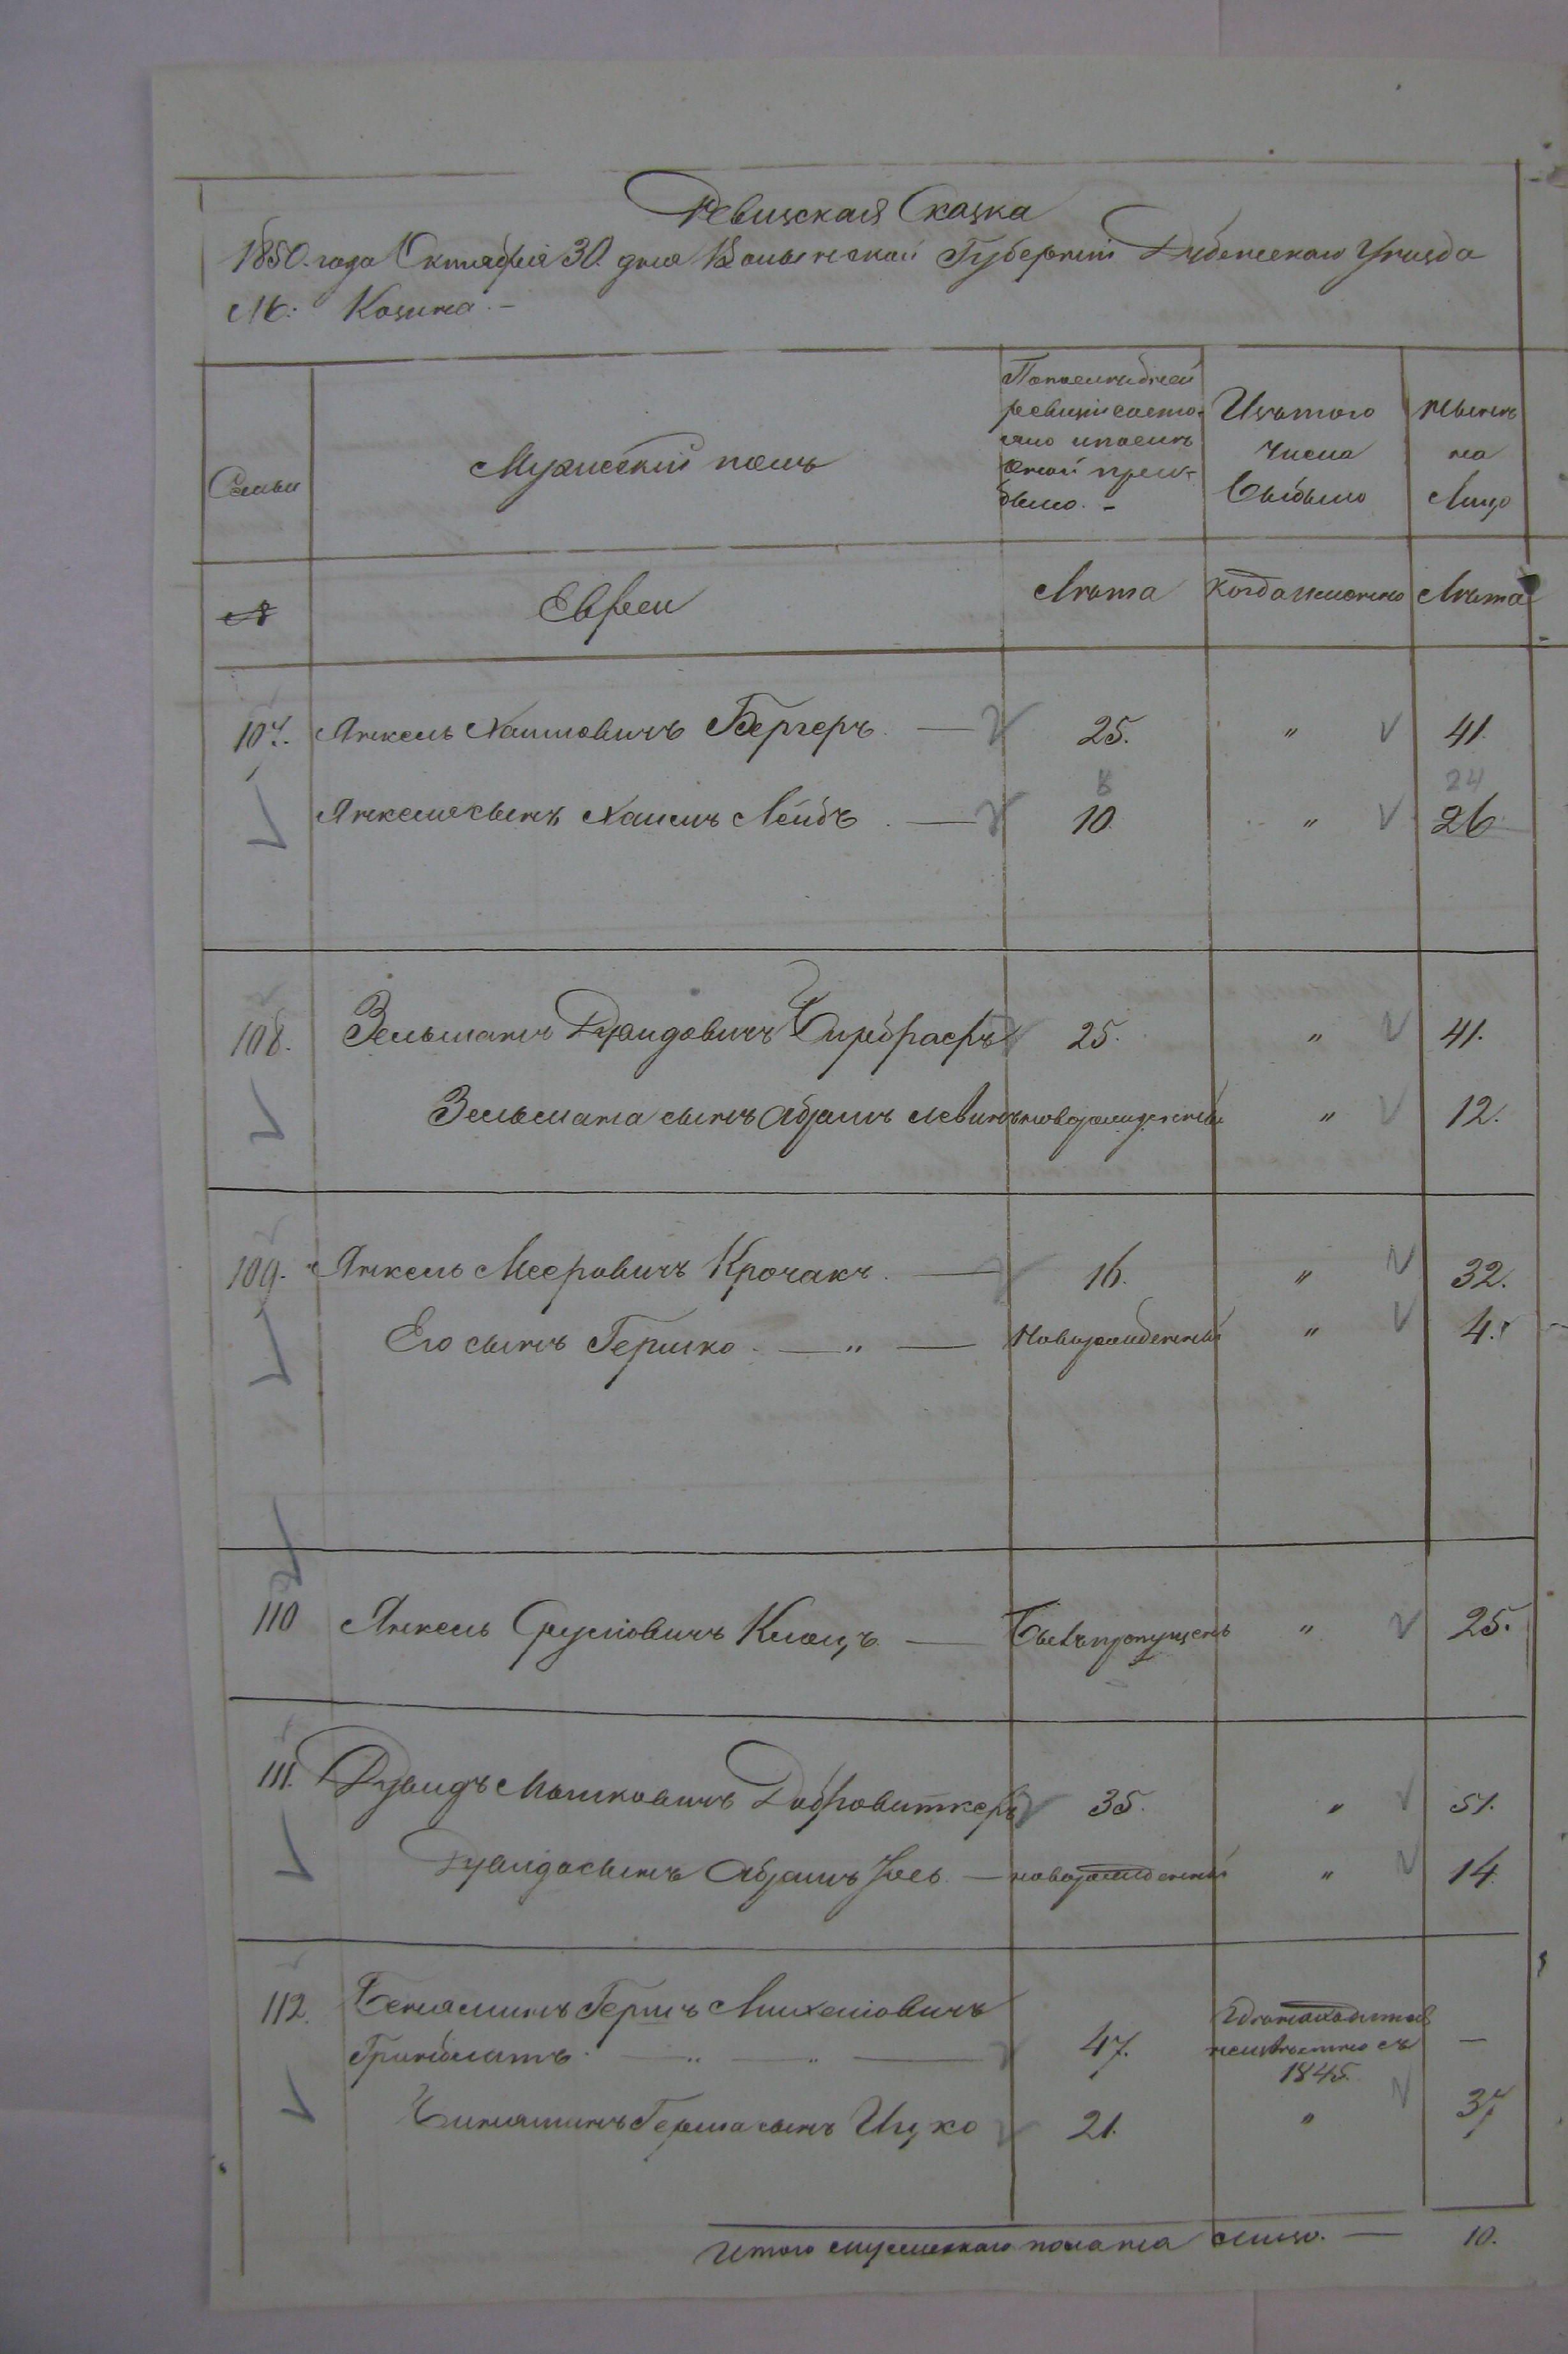 Ревизская Сказка
1850. года Октября 30. дня Волынской Губерніи Дубенскаго Уѣзда
М: Козина. –
Семьи
Мужескій полъ
По последней
ревизіи состо-
яло и послѣ
оной при-
было. –
Изъ того
числа
выбыло
Нынѣ
на
лицо
№
Евреи
Лѣта
Когда именно
Лѣта
107. Янкель Хаимовичъ Бергеръ. — 25. " 41.
8 24
Янкеля сынъ Хаимъ Лейбъ. — 10. " 26.
108. Зельманъ Дувидовичъ 25. " 41.
Зельмана сынъ Абрамъ Левинъ новорожденный " 12.
109. Янкель Мееровичъ Крочакъ. — 16. " 32.
Его сынъ Гершко. — " — Новорожденный " 4.
110 Янкель Сруліовичъ Клоцъ. — Былъ пропущенъ " 25.
111. Дувидъ Мошковичъ Добровиткеръ 35. " 51.
Дувида сынъ Абрамъ Іось. — новорожденный " 14.
112. Беніаминъ Гершъ Михеліовичъ
Гринблатъ. — " — " — 47. Где находится неизвѣстно съ 1845. —
Биніаминъ Герша сынъ Ицко 21. " 37
Итого мужескаго пола на лицо. — 10.